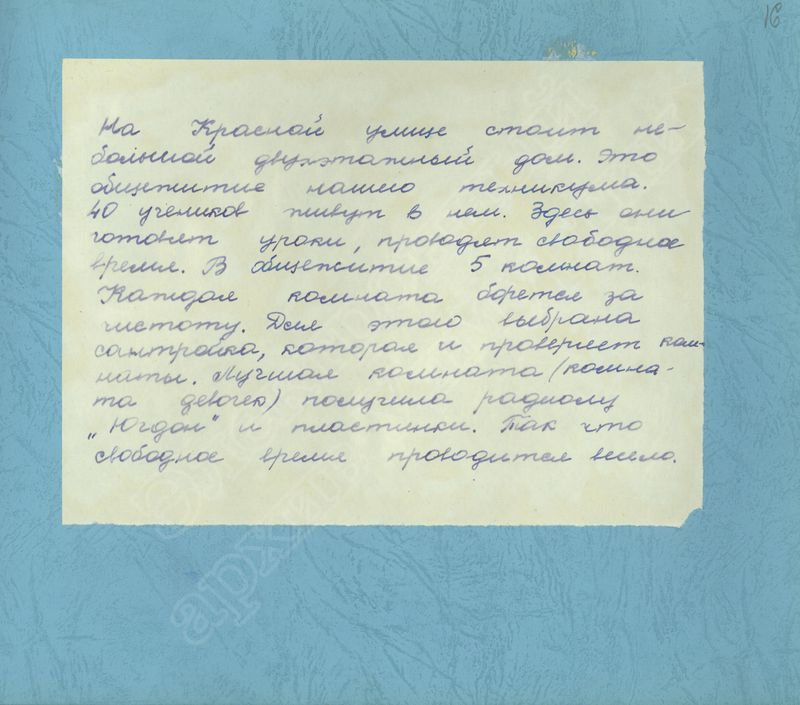 16
На Красной улице стоит не-
большой двухэтажный дом. Это
общежитие нашего техникума.
40 учеников живут в нем. Здесь они
готовят уроки, проводят свободное
время. В общежитие 5 комнат.
Каждая комната борется за
чистоту. Для этого выбрана
сантройка, которая и проверяет ком-
наты. Лучшая комната (комна-
та девочек) получила радиолу
"Югдон" и пластинки. Так что
свободное время проводится весело.